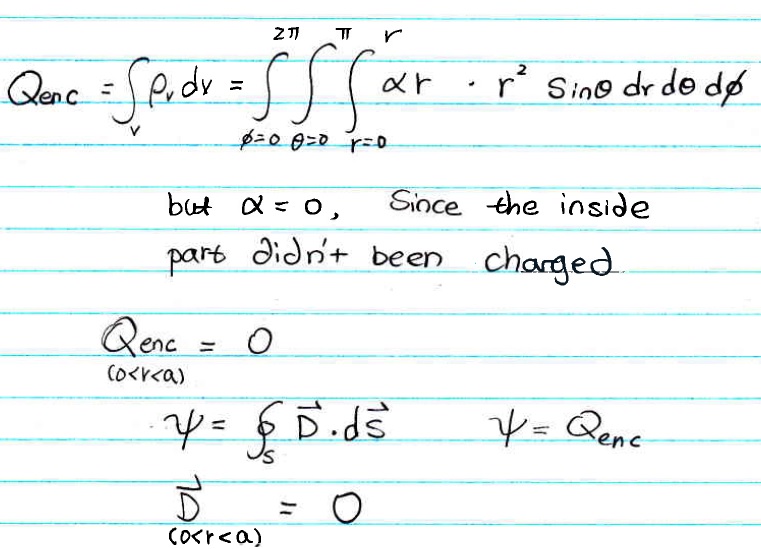 Qenc = ∫ᵥ ρᵥ dv = ∫_{ϕ=0}^{2π} ∫_{θ=0}^{π} ∫_{r=0}^{r} αr · r² Sinθ dr dθ dϕ
but α = 0, Since the inside
part didn't been charged
Qenc = 0
(0<r<a)
ψ = ∮ₛ D⃗ . ds⃗ ψ = Qenc
D⃗ = 0
(0<r<a)